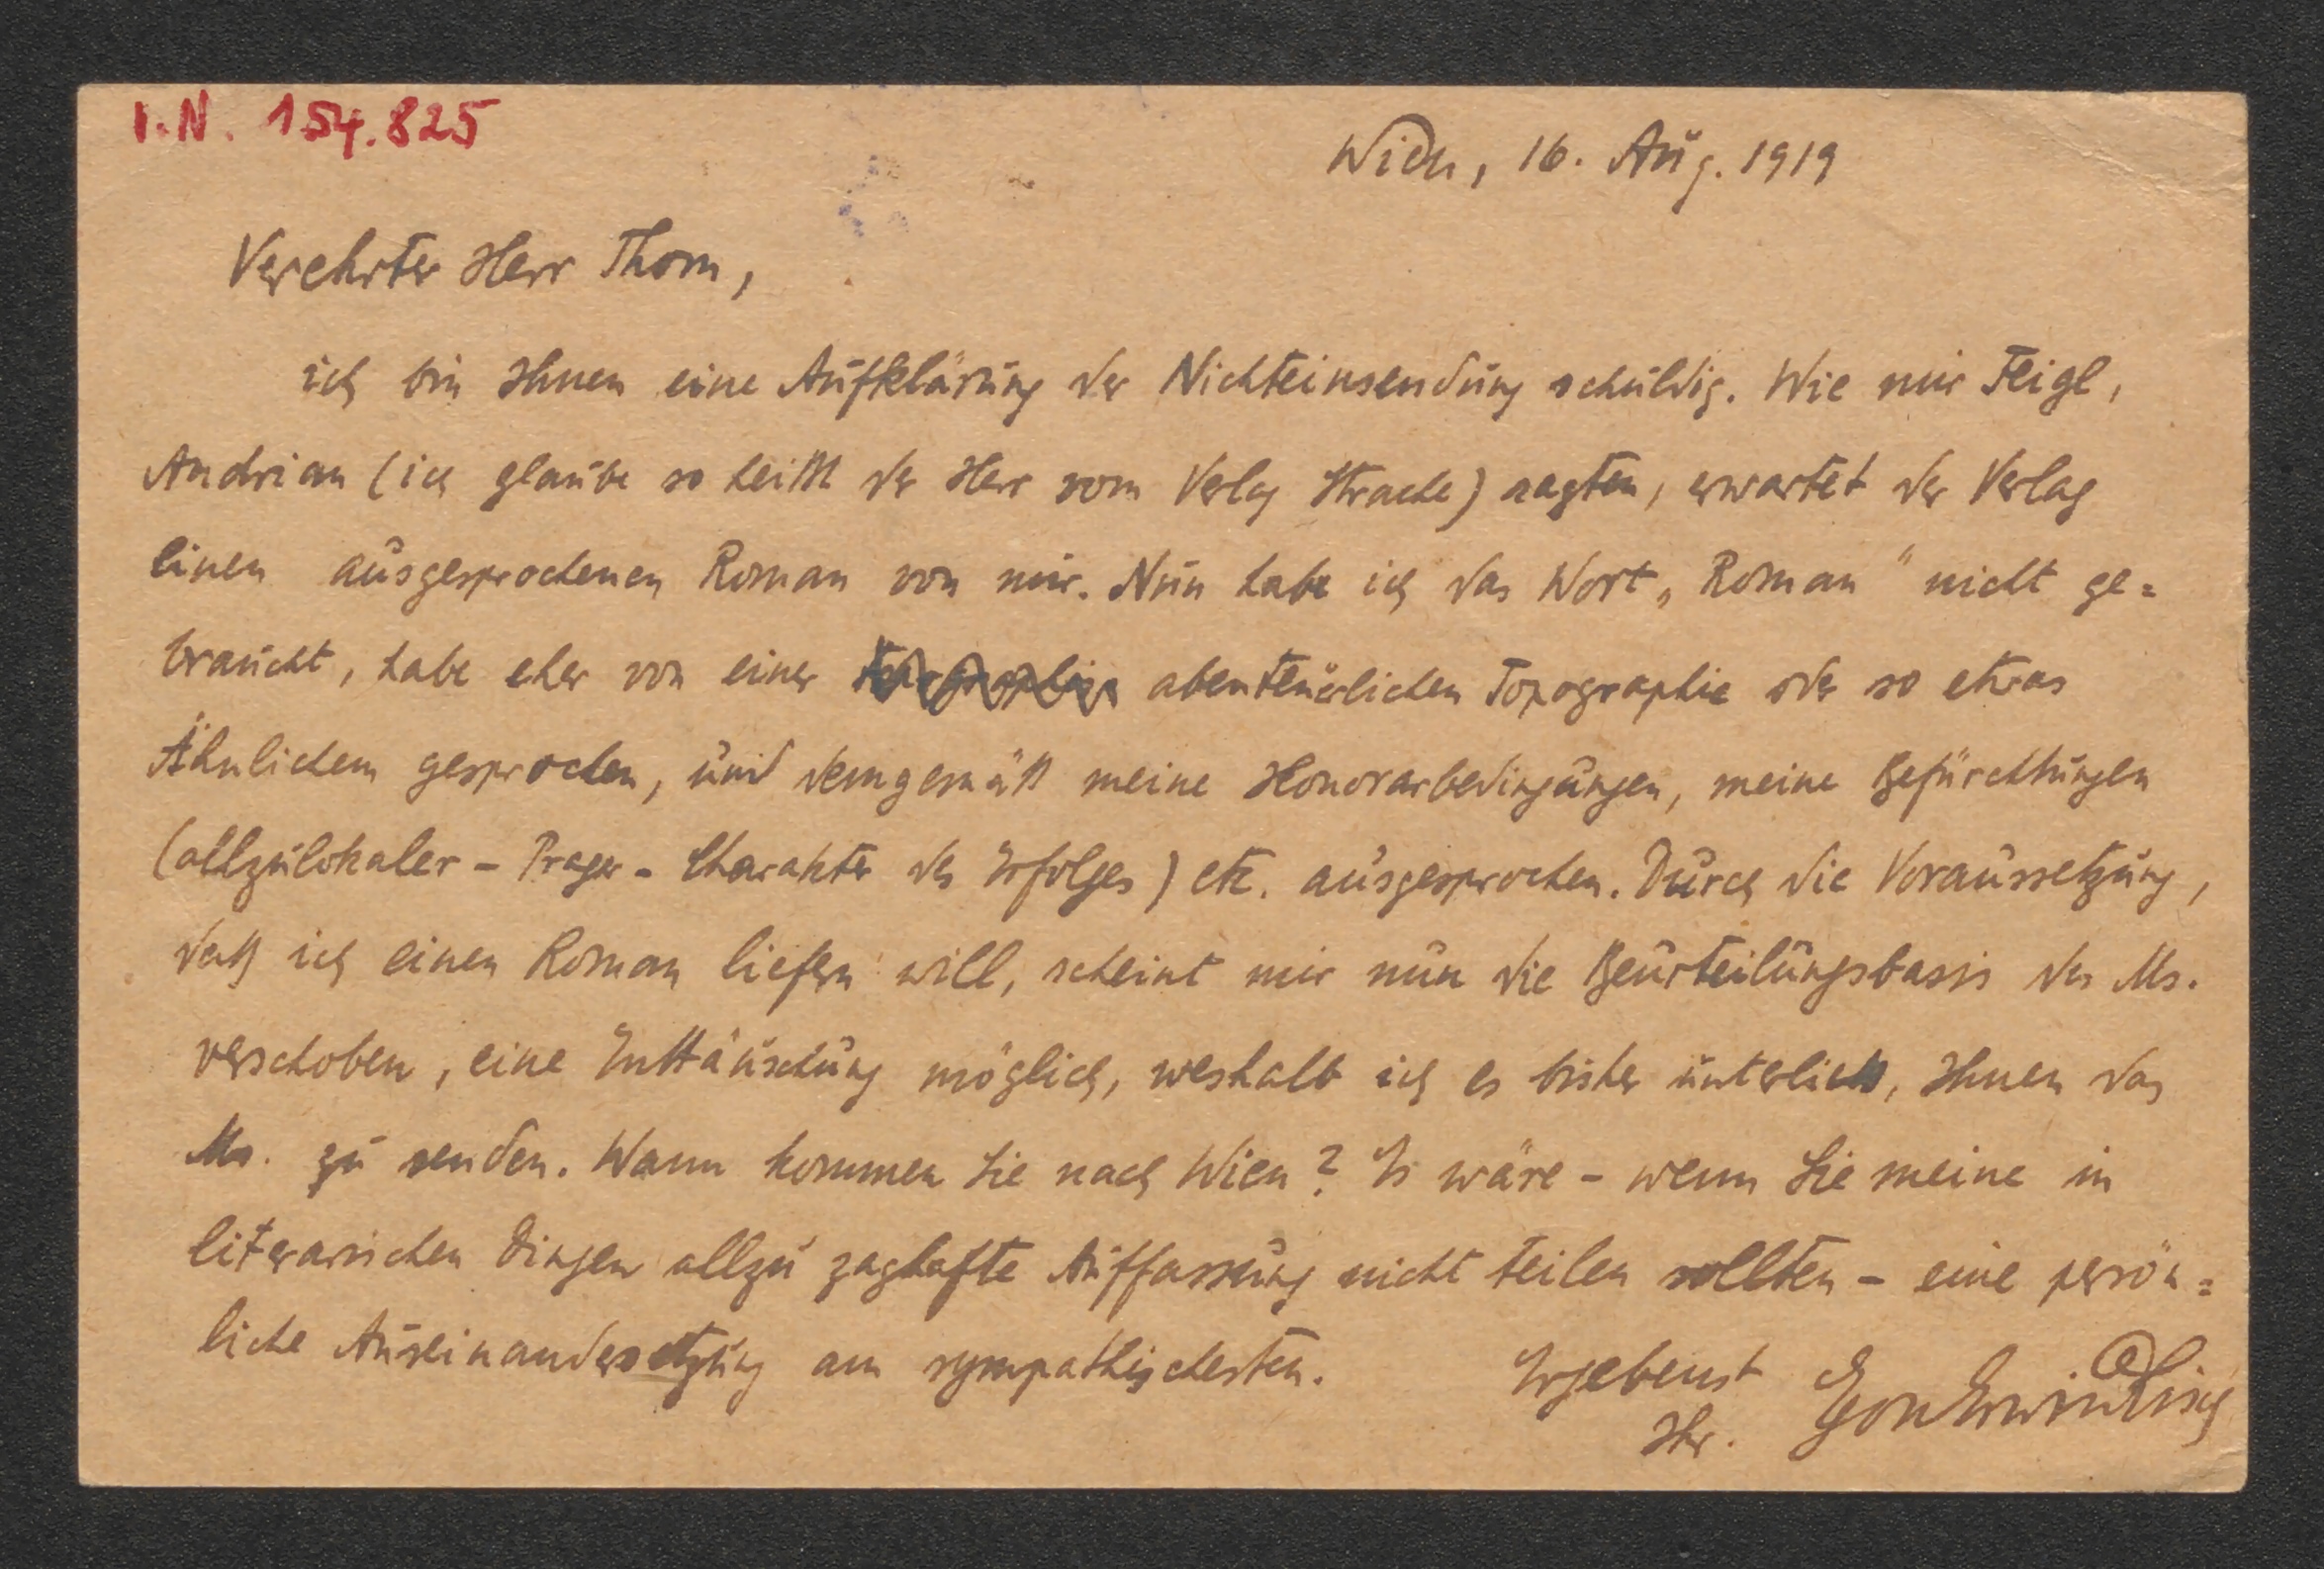 I.N. 154.825
Wien, 16. Aug. 1919
Verehrter Herr Thom,
ich bin Ihnen eine Aufklärung der Nichteinsendung schuldig. Wie mir Feigl,
Andrian (ich glaube so heißt der Herr vom Verlag Strache) sagten, erwartet der Verlag
einen ausgesprochenen Roman von mir. Nun habe ich das Wort „Roman" nicht ge=
braucht, habe eher von einer abenteuerlichen Topographie oder so etwas
Ähnlichem gesprochen, und demgemäß meine Honorarbedingungen, meine Befürchtungen
(allzulokaler - Prager - Charakter des Erfolges) etc. ausgesprochen. Durch die Voraussetzung,
daß ich einen Roman liefern will, scheint mir nun die Beurteilungsbasis des Ms.
verschoben, eine Enttäuschung möglich, weshalb ich es bisher unterließ, Ihnen das
Ms. zu senden. Wann kommen Sie nach Wien? Es wäre - wenn Sie meine in
literarischen Dingen allzu zaghafte Auffassung nicht teilen sollten - eine persön=
liche Auseinandersetzung am sympathischesten.
Ergebenst
Ihr. Egon Erwin Kisch